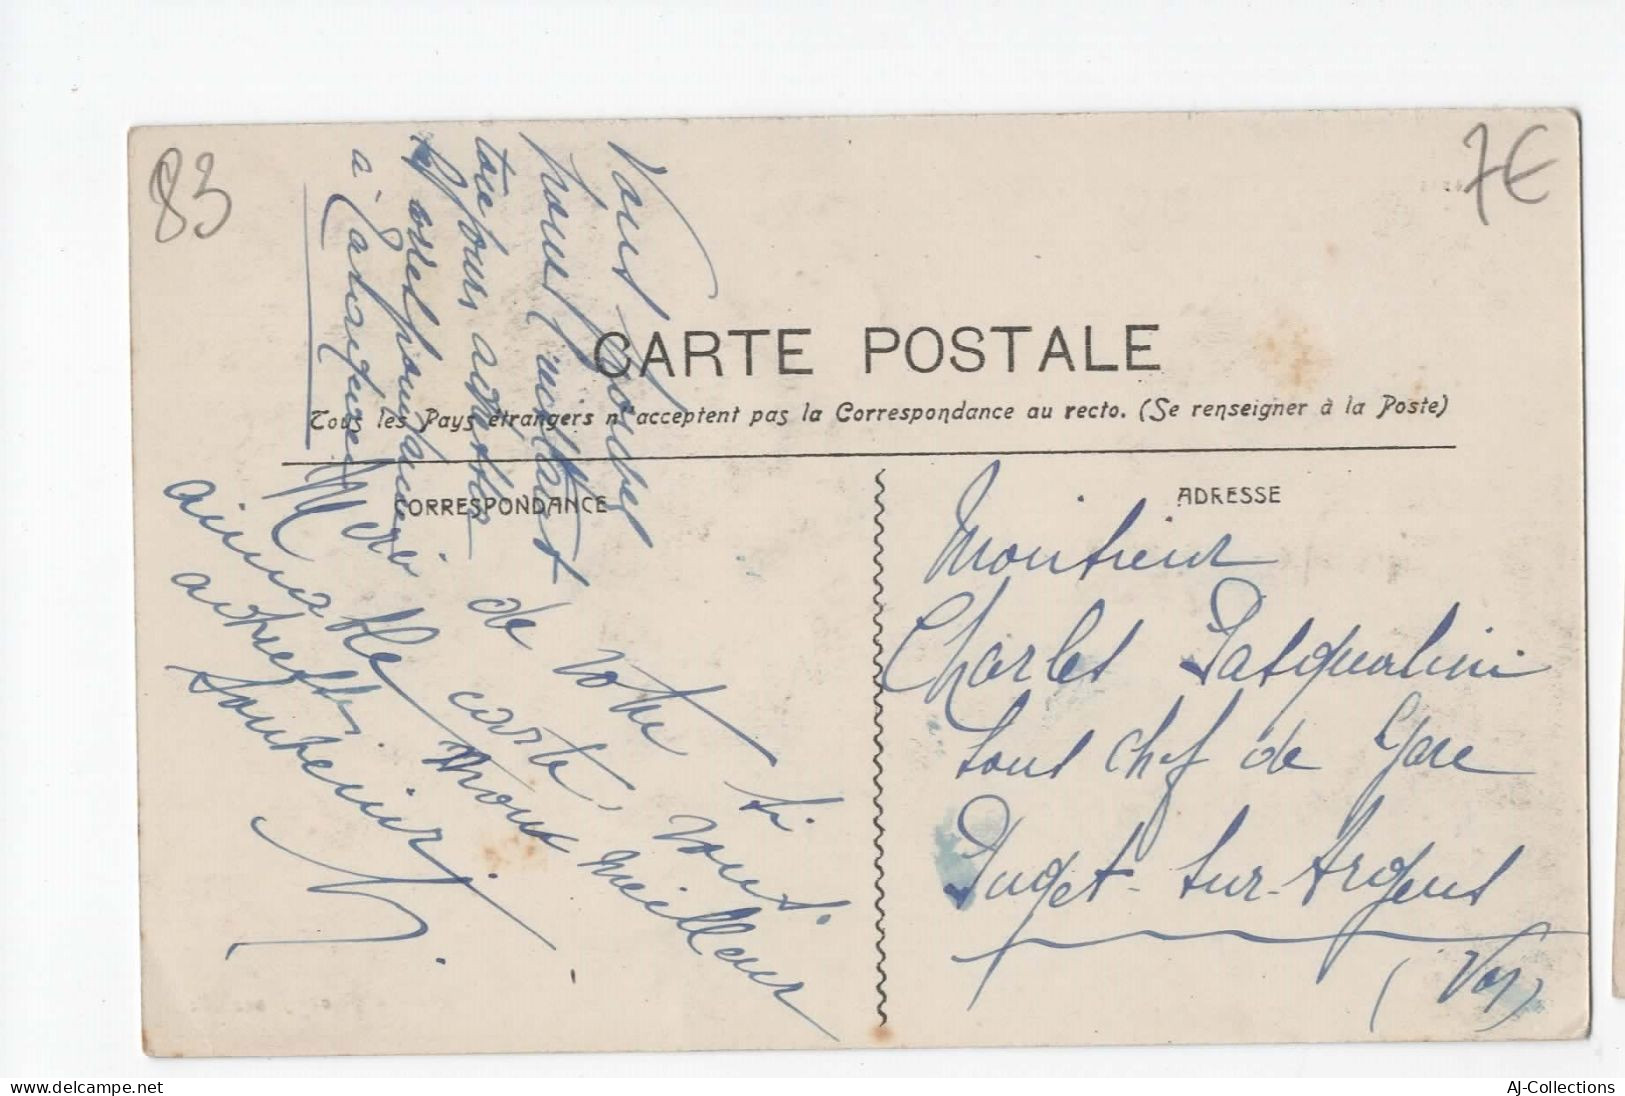 83
7€
CARTE POSTALE
Tous les Pays étrangers n'acceptent pas la Correspondance au recto. (Se renseigner à la Poste)
CORRESPONDANCE
ADRESSE
Merci de votre si
aimable carte, vous
adresse mon meilleur
souvenir.
Vous pouvez
pour l'instant
toujours adresser
à
Monsieur
Charles Pasqualini
Sous chef de Gare
Puget-sur-Argens
(Var)
AJ-Collections
www.delcampe.net